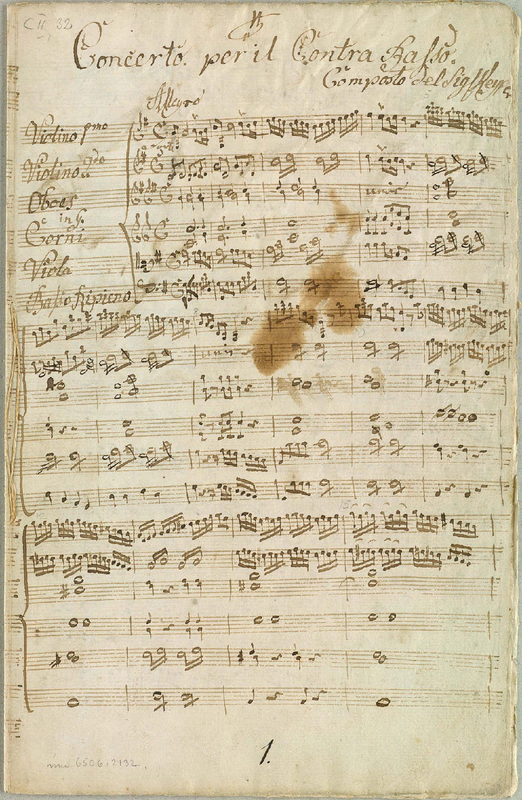 C II, 32
Concerto. per il Contra Basso.
Composto del Sig
Allegro
Violino pmo
Violino 2do
Oboes
Corni in G.
Viola
Basso Ripieno
1.